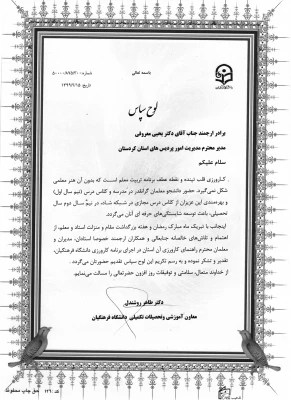 باسمه تعالی
شماره: ۵۰۰۰۰/۸۷۵/۲۰۰
تاریخ: ۱۳۹۹/۲/۱۵
لوح سپاس
برادر ارجمند جناب آقای دکتر یحیی معروفی
مدیر محترم مدیریت امور پردیس های استان کردستان
سلام علیکم
کارورزی قلب تپنده و نقطه عطف برنامه تربیت معلم است که بدون آن هنر معلمی
شکل نمی‌گیرد. حضور دانشجو معلمان گرانقدر در مدرسه و کلاس درس (نیم سال اول)
و بهره‌مندی این عزیزان از کلاس درس مجازی در شبکه شاد، در نیم سال دوم سال
تحصیلی، باعث توسعه شایستگی‌های حرفه ای آنان می‌گردد.
اینجانب با تبریک ماه مبارک رمضان و هفته بزرگداشت مقام و منزلت استاد و معلم، از
اهتمام و تلاش‌های خالصانه جنابعالی و همکاران ارجمند خصوصا استادان، مدیران و
معلمان محترم راهنمای کارورزی آن استان در اجرای برنامه کارورزی دانشگاه فرهنگیان،
تقدیر و تشکر نموده و به رسم تکریم این لوح سپاس تقدیم حضورتان می‌گردد.
از خداوند متعال، سلامتی و توفیقات روز افزون حضرتعالی را مسالت می‌نمایم.
دکتر طاهر روشندل
معاون آموزشی وتحصیلات تکمیلی دانشگاه فرهنگیان
حق چاپ محفوظ